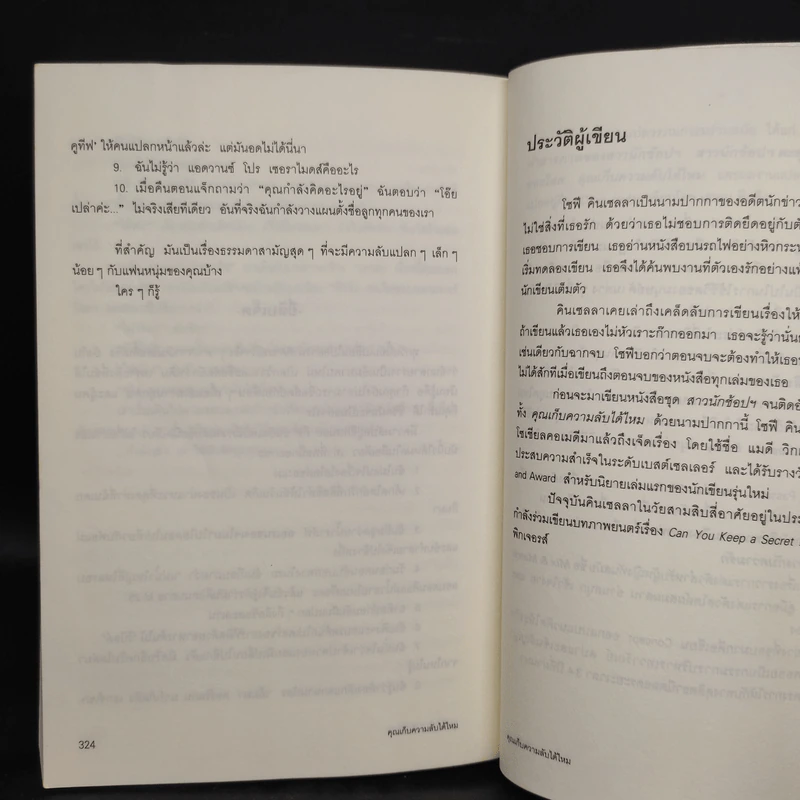 คูทีฟ' ให้คนแปลกหน้าแล้วล่ะ แต่มันอดไม่ได้นี่นา
9. ฉันไม่รู้ว่า แอดวานซ์ โปร เซอราไมดส์คืออะไร
10. เมื่อคืนตอนแจ็กถามว่า “คุณกำลังคิดอะไรอยู่” ฉันตอบว่า “โอ๊ย
เปล่าค่ะ...” ไม่จริงเสียทีเดียว อันที่จริงฉันกำลังวางแผนตั้งชื่อลูกทุกคนของเรา
ที่สำคัญ มันเป็นเรื่องธรรมดาสามัญสุด ๆ ที่จะมีความลับแปลก ๆ เล็ก ๆ
น้อย ๆ กับแฟนหนุ่มของคุณบ้าง
ใคร ๆ ก็รู้
324
คุณเก็บความลับได้ไหม
ประวัติผู้เขียน
โซฟี คินเซลลาเป็นนามปากกาของอดีตนักข่าว
ไม่ใช่สิ่งที่เธอรัก ด้วยว่าเธอไม่ชอบการติดยึดอยู่กับตั
เธอชอบการเขียน เธออ่านหนังสือบนรถไฟอย่างหิวกระห
เริ่มทดลองเขียน เธอจึงได้ค้นพบงานที่ตัวเองรักอย่างแท้
นักเขียนเต็มตัว
คินเซลลาเคยเล่าถึงเคล็ดลับการเขียนเรื่องให้
ถ้าเขียนแล้วเธอเองไม่หัวเราะก๊ากออกมา เธอจะรู้ว่านั่น
เช่นเดียวกับฉากจบ โซฟีบอกว่าตอนจบจะต้องทำให้เธอ
ไม่ได้สักทีเมื่อเขียนถึงตอนจบของหนังสือทุกเล่มของเธอ
ก่อนจะมาเขียนหนังสือชุด สาวนักช้อปฯ จนติดอั
ทั้ง คุณเก็บความลับได้ไหม ด้วยนามปากกานี้ โซฟี คิน
โซเชียลคอเมดีมาแล้วถึงเจ็ดเรื่อง โดยใช้ชื่อ แมดี วิก
ประสบความสำเร็จในระดับเบสต์เซลเลอร์ และได้รับรางวั
and Award สำหรับนิยายเล่มแรกของนักเขียนรุ่นใหม่
ปัจจุบันคินเซลลาในวัยสามสิบสี่อาศัยอยู่ในประ
กำลังร่วมเขียนบทภาพยนตร์เรื่อง Can You Keep a Secret
พิกเจอรส์
คุณเก็บความลับได้ไหม